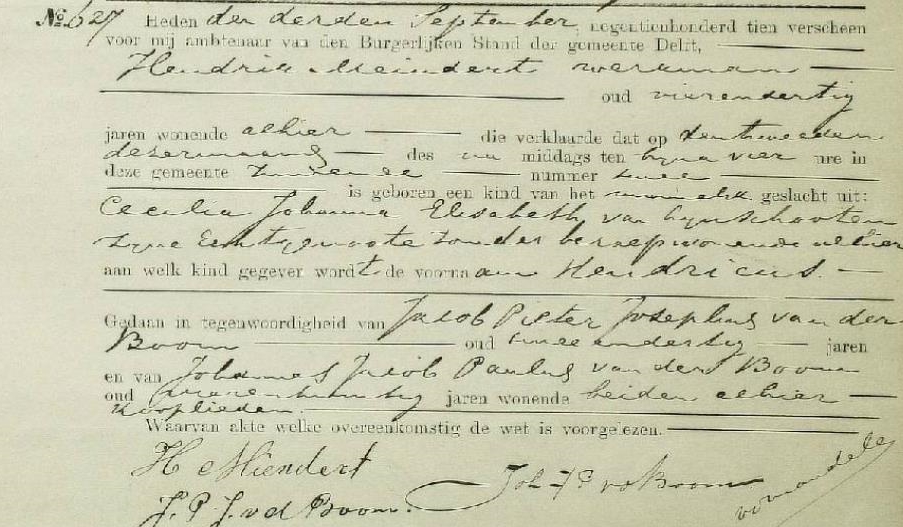 No. 627 Heden den derden September, negentienhonderd tien verscheen
voor mij ambtenaar van den Burgerlijken Stand der gemeente Delft,
Hendrik Meindert werkman
oud vierendertig
jaren wonende alhier die verklaarde dat op den tweeden
dezer maand des na middags ten vier ure in
deze gemeente nummer twee
is geboren een kind van het mannelijk geslacht uit:
Cecilia Johanna Elisabeth van
zijne Echtgenoote zonder beroep wonende alhier
aan welk kind gegeven wordt de voornaam Hendricus
Gedaan in tegenwoordigheid van Jacob Pieter Josephus van der
Boom oud tweeendertig jaren
en van Johannes Jacob Paulus van der Boom
oud jaren wonende beiden alhier
kooplieden.
Waarvan akte welke overeenkomstig de wet is voorgelezen.
H Miendert
J. P. J. v d Boom. Joh J P vd Boom